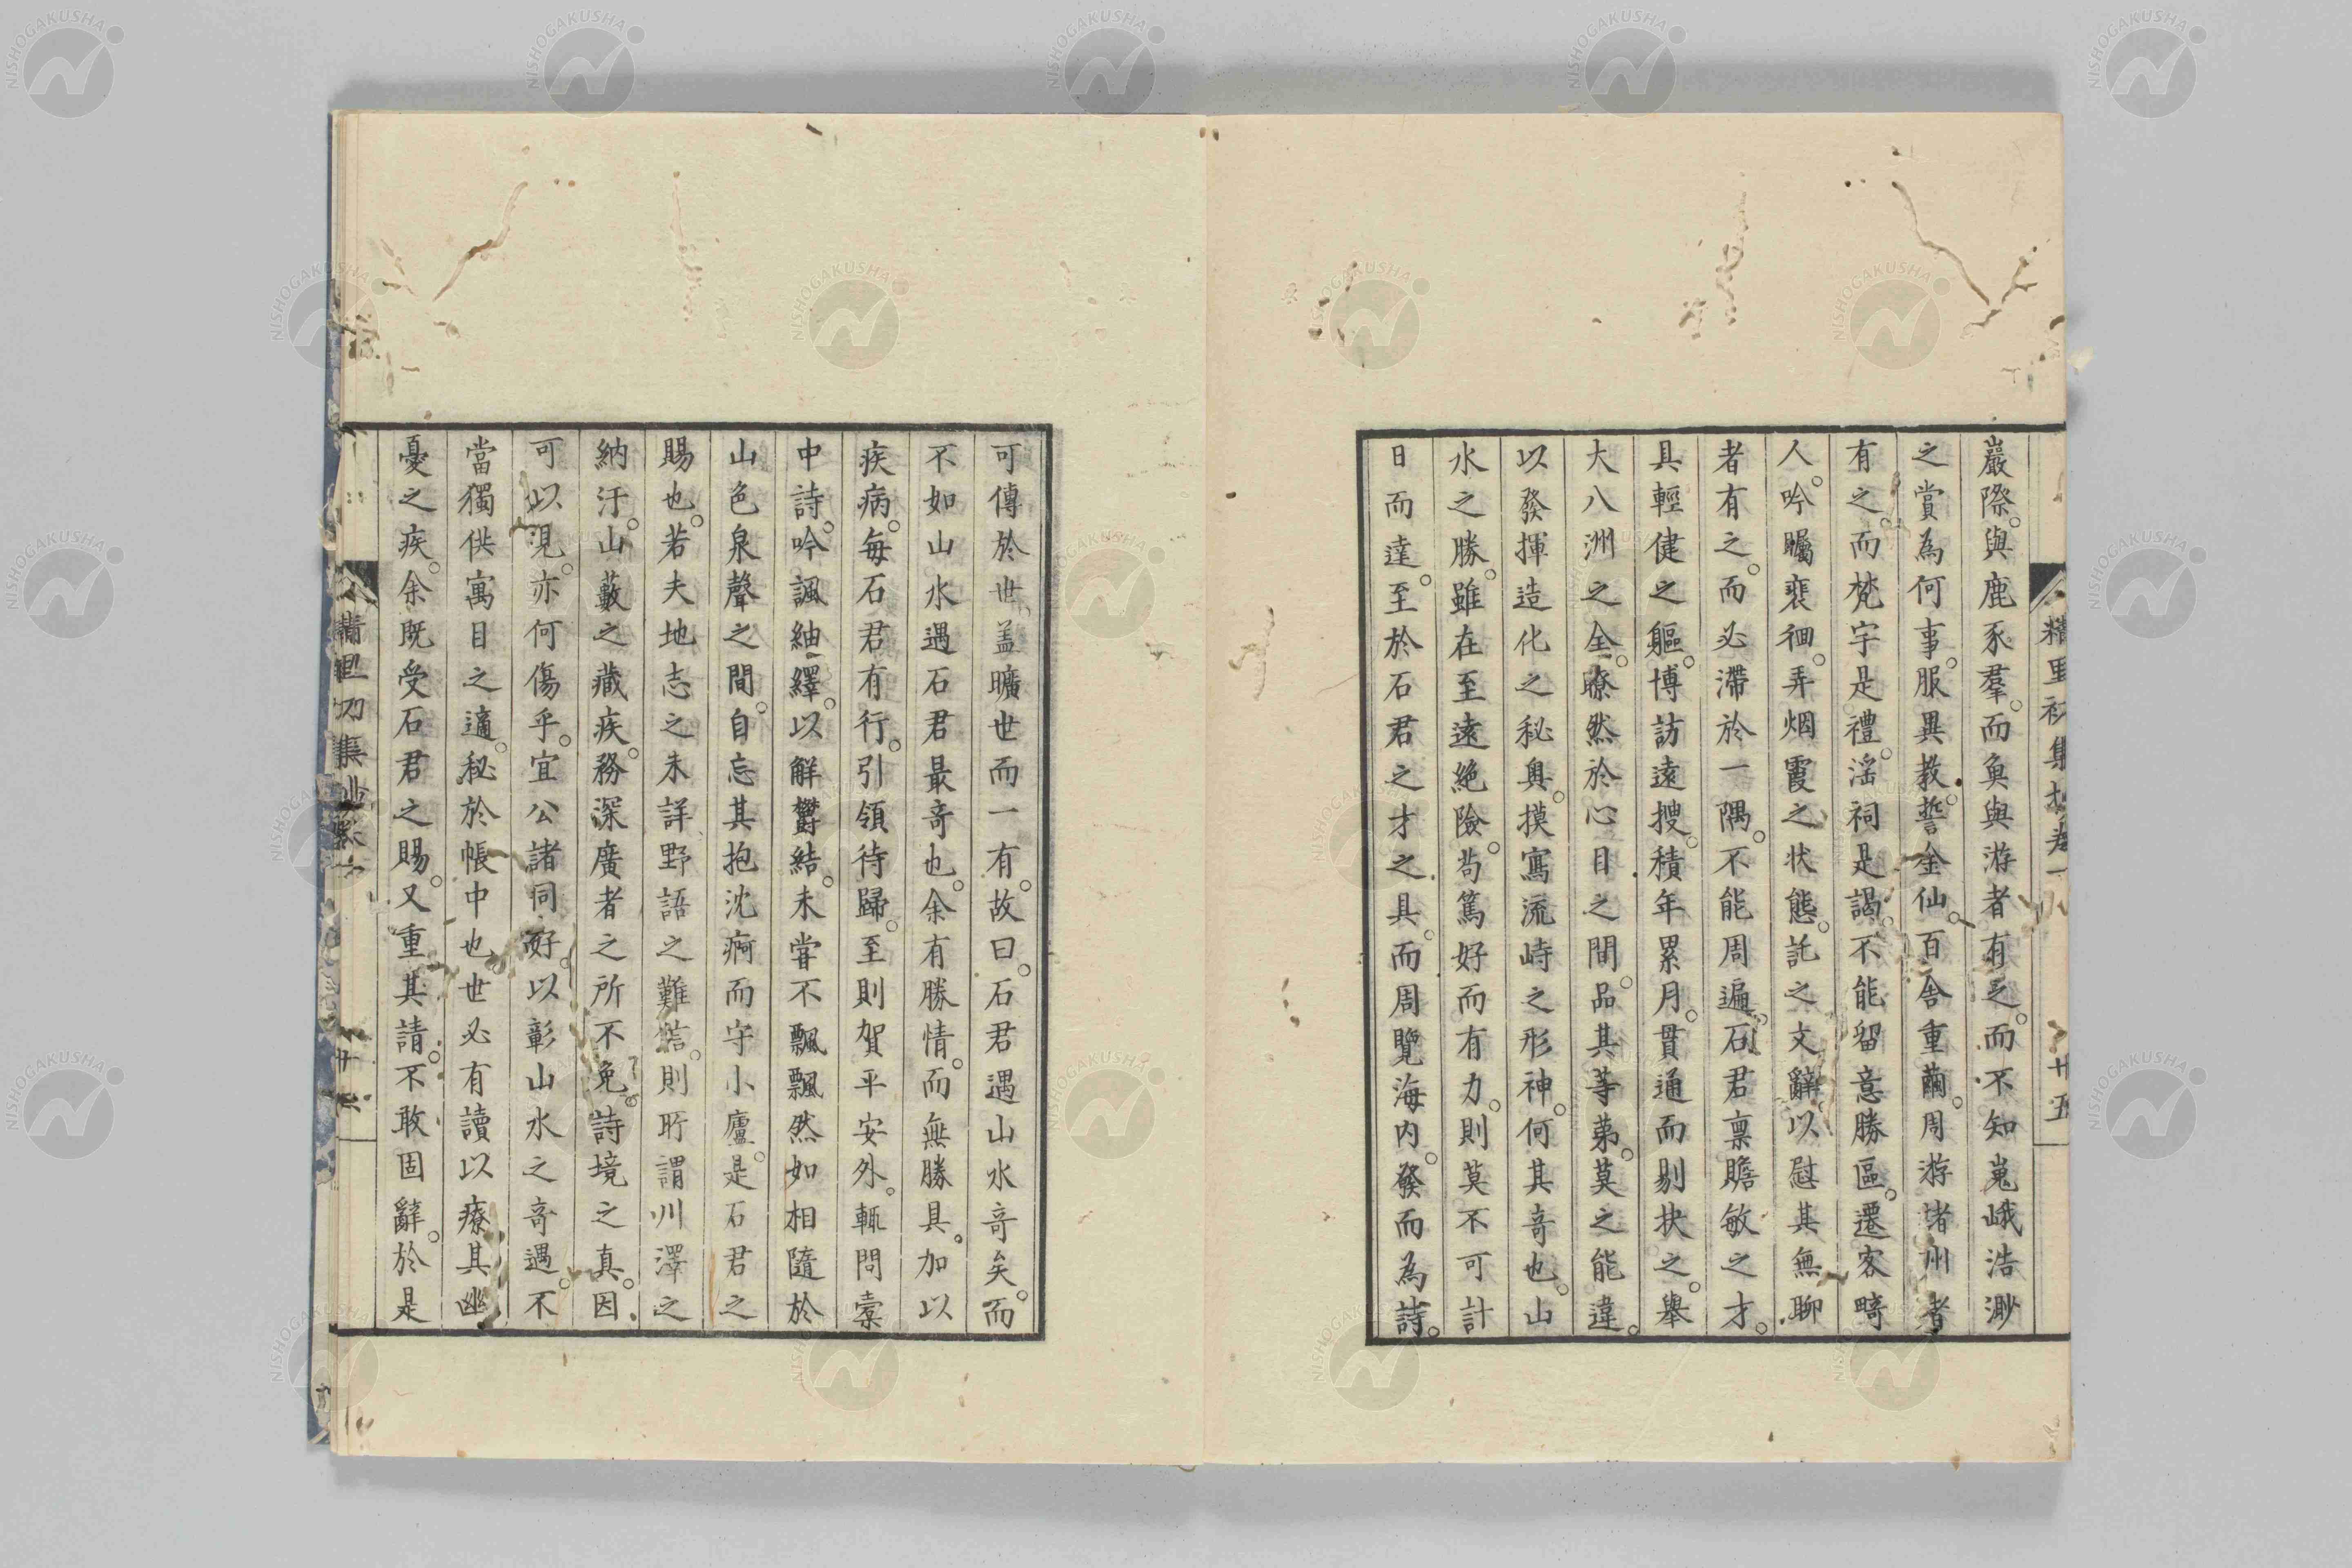 巖際。與鹿豕羣。而魚與游者有之。而不知嵬峨浩渺
之賞為何事。服異教。誓金仙。百舍重繭。周游堵州者
有之。而梵宇是禮。淫祠是謁。不能留意勝區。遷客畸
人。吟矚裴徊。弄烟霞之状態。託之文辭以慰其無聊
者有之。而必滯於一隅。不能周遍。石君禀贍敏之才。
具輕健之軀。博訪遠搜。積年累月。貫通而剔抉之。舉
大八洲之全。瞭然於心目之間。品其等苐。莫之能違。
以發揮造化之秘奥。摸寫流峙之形神。何其竒也。山
水之勝。雖在至遠絶險。苟篤好而有力。則莫不可計
日而達。至於石君之才之具。而周覽海内。發而為詩。
可傳於世。盖曠世而一有。故曰。石君遇山水竒矣。而
不如山水遇石君最竒也。余有勝情。而無勝具。加以
疾病。每石君有行。引領待歸。至則賀平安外。輒問槖
中詩。吟諷紬繹。以解欝結。未甞不飄飄然如相隨於
山色泉聲之間。自忘其抱沈痾而守小廬。是石君之
賜也。若夫地志之未詳。野語之難信。則所謂川澤之
納汙。山藪之藏疾。務深廣者之所不免。詩境之真。因
可以見。亦何傷乎。宜公諸同好。以彰山水之竒遇。不
當獨供寓目之適。秘於帳中也。世必有讀以療其幽
憂之疾。余既受石君之賜。又重其請。不敢固辭。於是
精里初集抄卷一
廿五